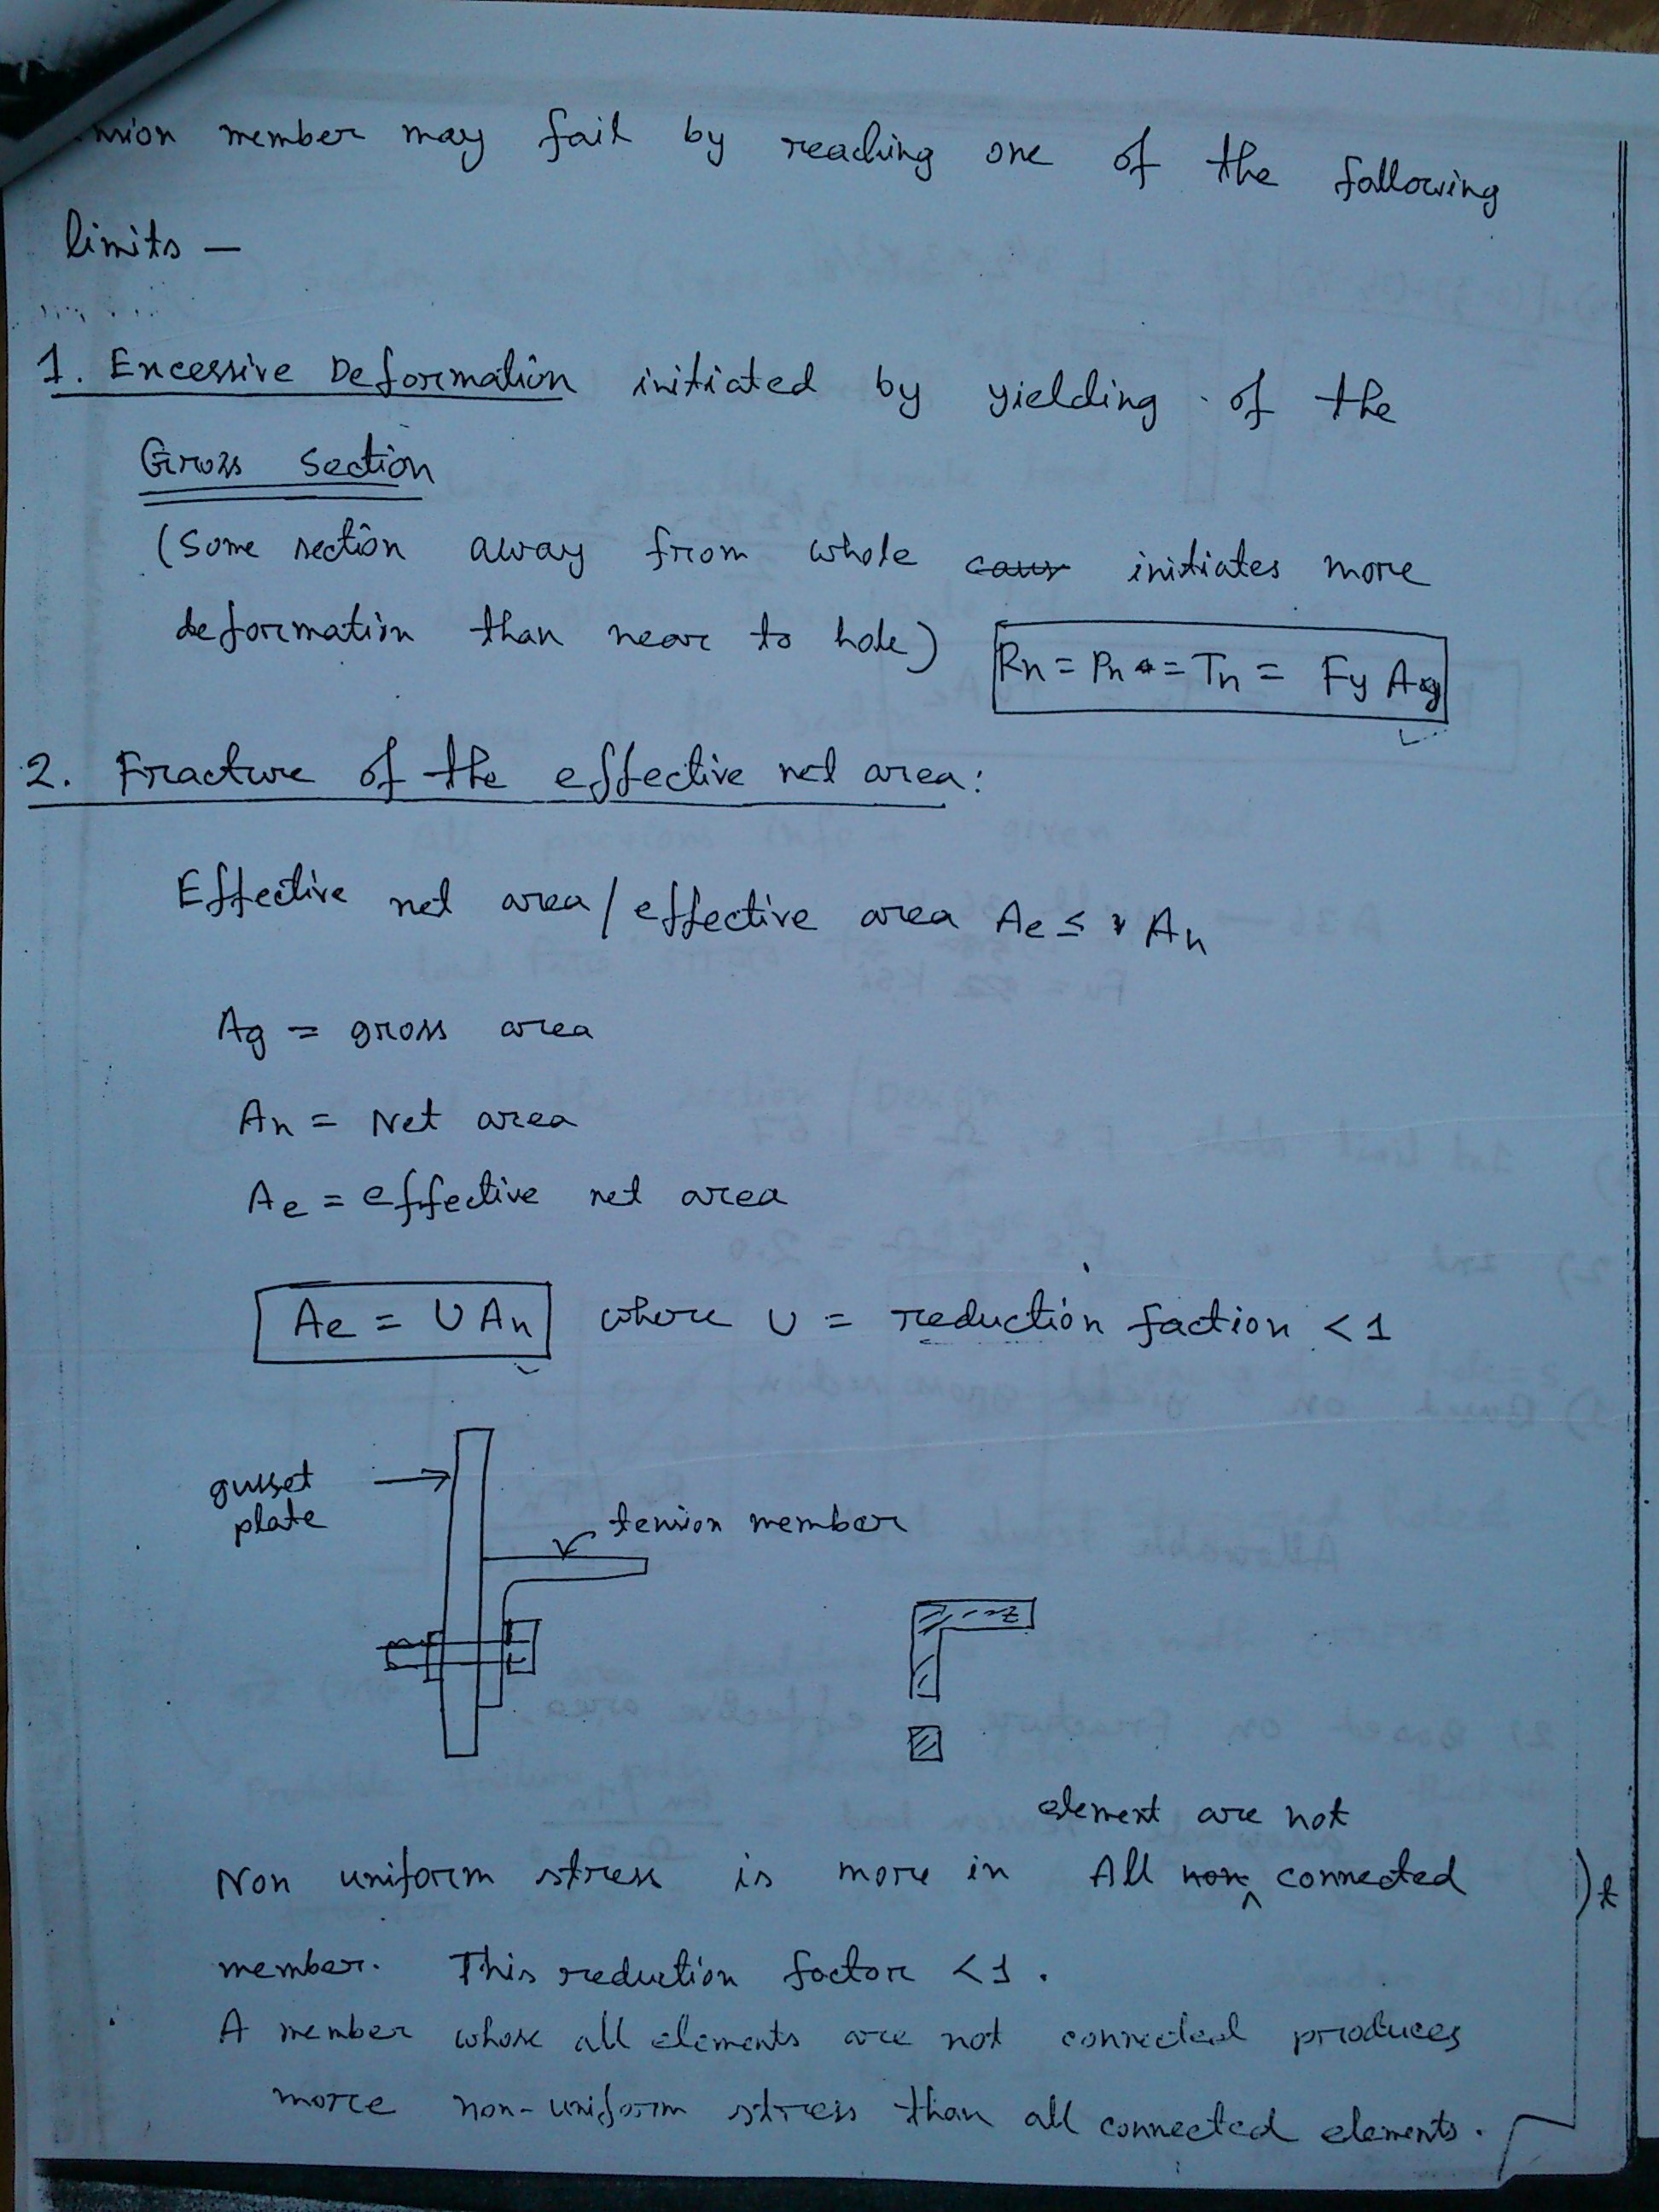 nsion member may fail by reaching one of the following
limits —
1. Excessive Deformation initiated by yielding of the
Gross Section
(Some section away from whole initiates more
deformation than near to hole)
Rn = Pn = Tn = Fy Ag
2. Fracture of the effective net area:
Effective net area/effective area Ae ≤ An
Ag = gross area
An = Net area
Ae = effective net area
Ae = U An where U = reduction faction < 1
gusset
plate
tension member
element are not
Non uniform stress is more in All non connected
member. This reduction factor < 1.
A member whose all elements are not connected produces
more non-uniform stress than all connected elements.